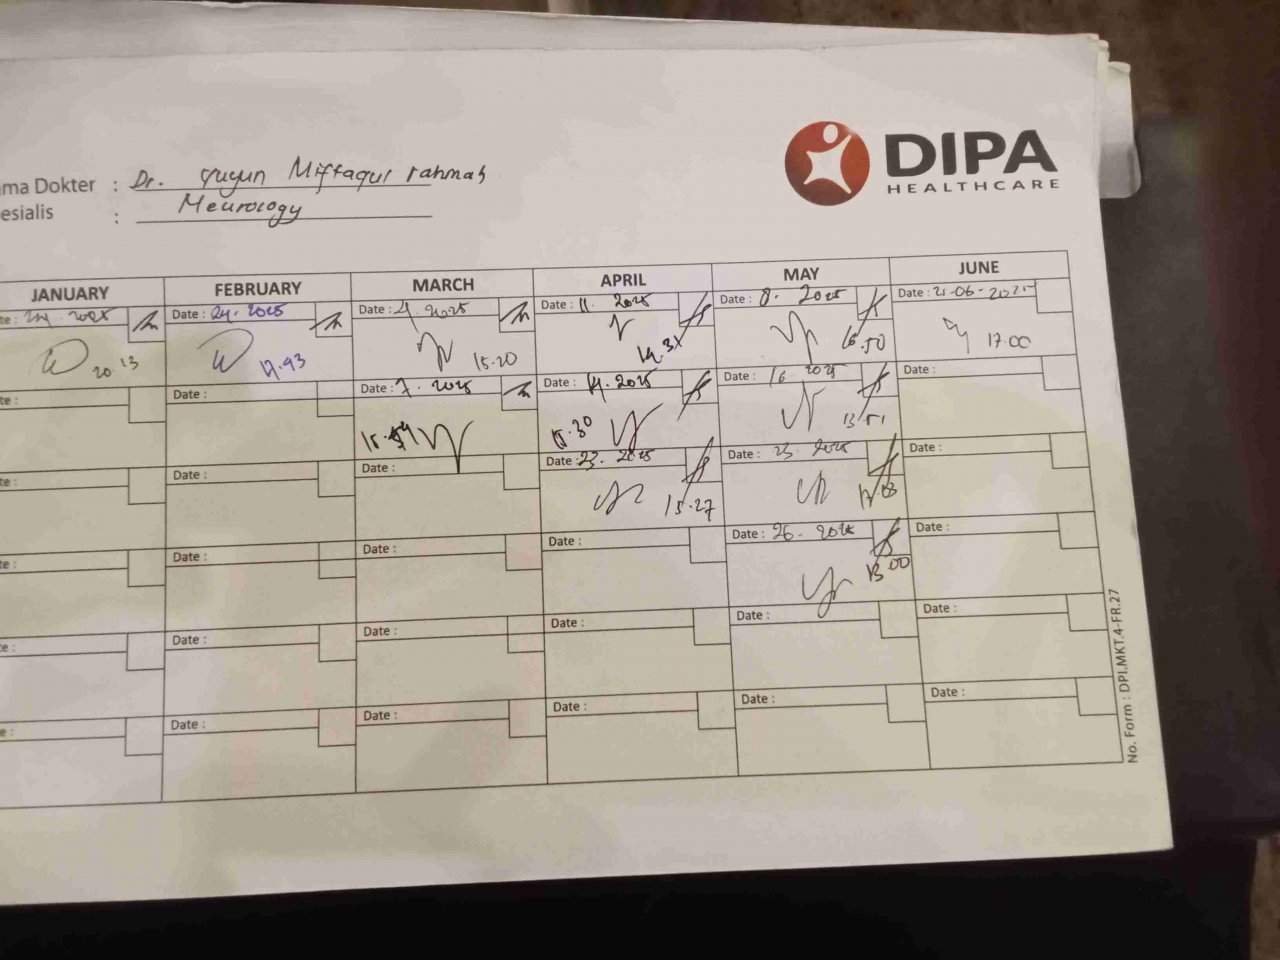 DIPA
HEALTHCARE
ma Dokter : Dr. Yuyun Miftaqul rahmah
esialis : Neurology
JANUARY FEBRUARY MARCH APRIL MAY JUNE
te: 24. 2025 Date : 24. 2025 Date : 4. 2025 Date : 11. 2025 Date : 8. 2025 Date : 21-06-2025
20.13 19.43 15.20 14.31 16.50 17.00
te : Date : Date : 7. 2025 Date : 14. 2025 Date : 16 2025 Date :
15.30 13.51
te : Date : Date : Date : 23. 2025 Date : 23. 2025 Date :
15.27 17.03
te : Date : Date : Date : Date : 26. 2025 Date :
13.00
te : Date : Date : Date : Date : Date :
te : Date : Date : Date : Date : Date :
No. Form : DPI.MKT.4-FR.27